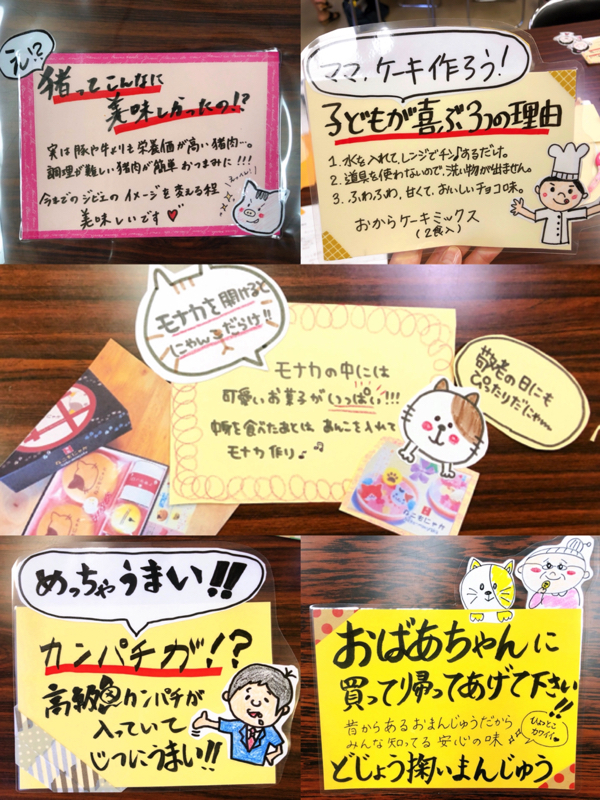 えい!?
猪ってこんなに
美味しかったの!?
実は豚や牛よりも栄養価が高い猪肉…。
調理が難しい猪肉が簡単おつまみに!!!
今までのジビエのイメージを変える程
美味しいです♥
ママ、ケーキ作ろう!
子どもが喜ぶ3つの理由
1. 水を入れて、レンジでチン♪するだけ。
2. 道具を使わないので、洗い物が出ません。
3. ふわふわ、甘くて、おいしいチョコ味。
おからケーキミックス
(2食入)
モナカを開けると
にゃんこだらけ!!
モナカの中には
可愛いお菓子がいっぱい!!!
中身を食べたあとは あんこを入れて
モナカ作り♪♪
敬老の日にも
ぴったりだにゃ〜
めっちゃうまい!!
カンパチが!?
高級カンパチが
入っていて
じつにうまい!!
おばあちゃんに
買って帰ってあげて下さい!!
昔からあるおまんじゅうだから
みんな知ってる安心の味
ひょっとこ
カワイイ
どじょう掬いまんじゅう